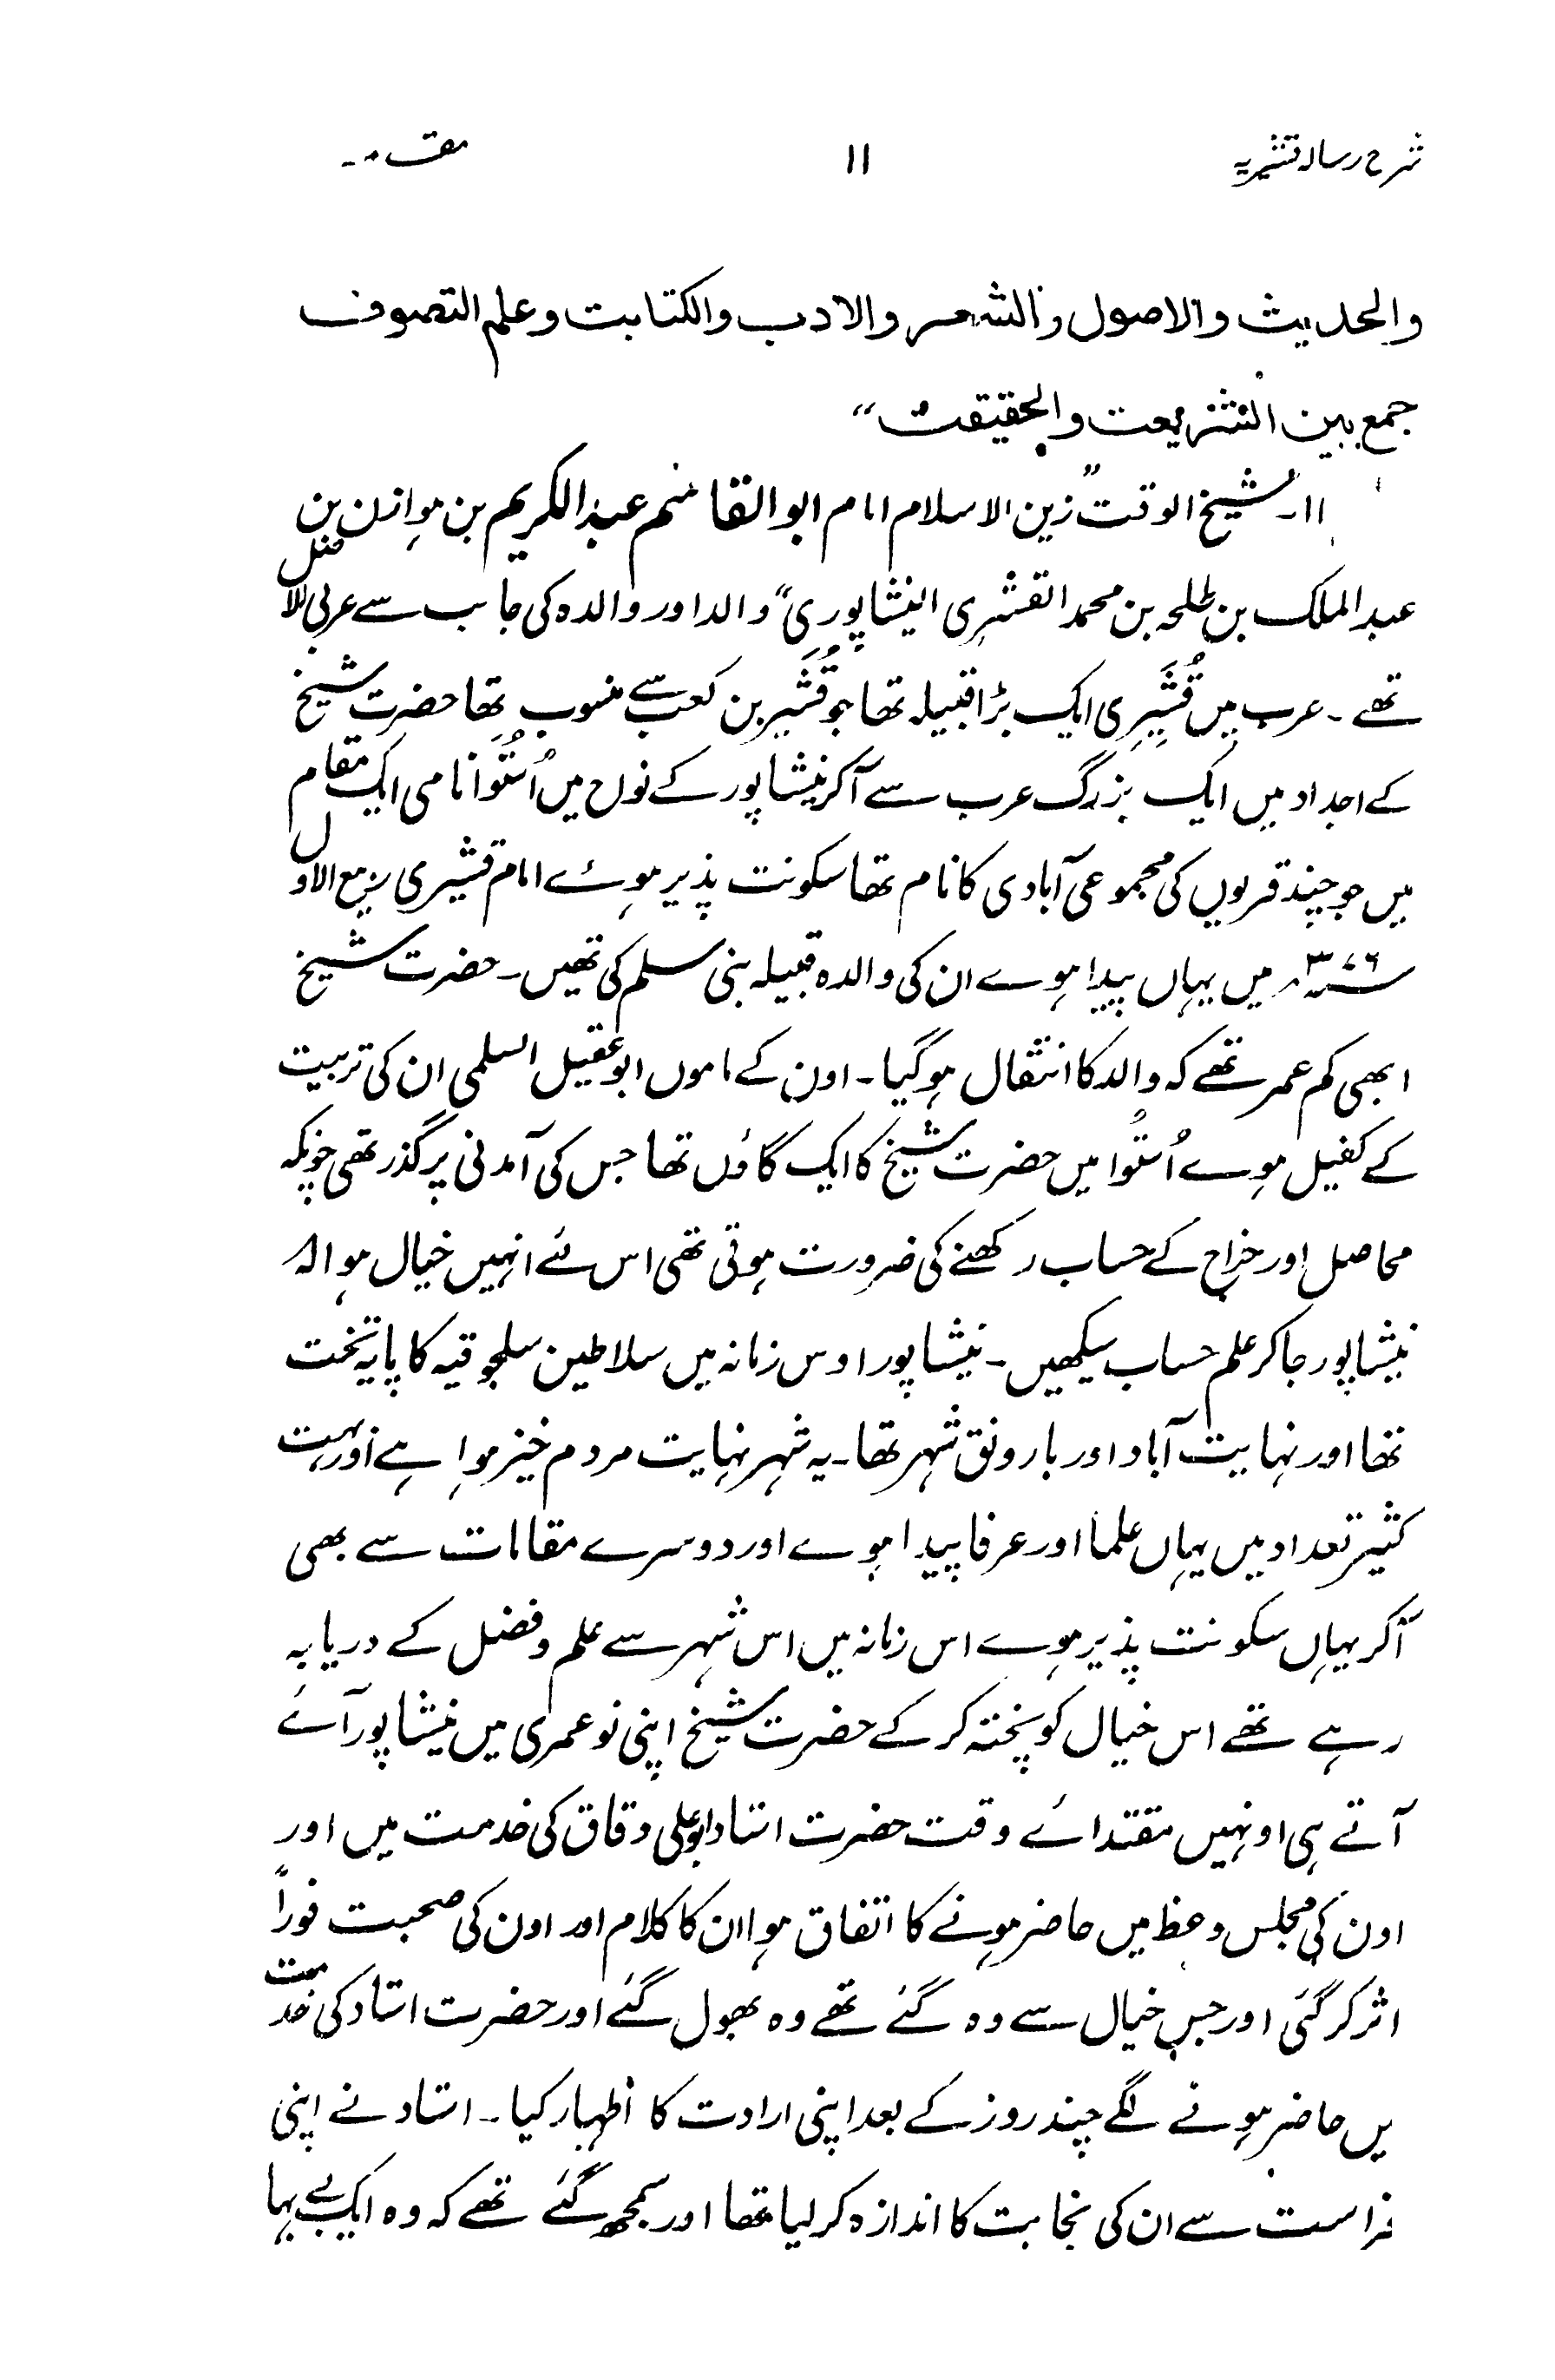 شرح رسالہ قشیریہ ۱۱ مقدمہ
والحدیث والاصول والشعر والادب والکتابت وعلم التصوف
جمع بین الشریعت والحقیقت“
۱۱۔ شیخ الوقت ”زین الاسلام امام ابو القاسم عبد الکریم بن ہوازن بن
عبد الملک بن طلحہ بن محمد القشیری النیشاپوری“ والد اور والدہ کی جانب سے عربی النسل
تھے۔ عرب میں قُشَیرِی ایک بڑا قبیلہ تھا جو قُشَیر بن کعب سے منسوب تھا حضرت شیخ
کے اجداد میں ایک بزرگ عرب سے آکر نیشاپور کے نواح میں اُسْتُوَا نامی ایک مقام
میں جو چند قریوں کی مجموعی آبادی کا نام تھا سکونت پذیر ہوئے امام قشیری ربیع الاول
سنہ ۳۷۶ھ میں یہاں پیدا ہوے ان کی والدہ قبیلہ بنی سلم کی تھیں۔ حضرت شیخ
ابھی کم عمر تھے کہ والد کا انتقال ہوگیا۔ اون کے ماموں ابوعقیل السلمی ان کی تربیت
کے کفیل ہوے اُستُوا میں حضرت شیخ کا ایک گاؤں تھا جس کی آمدنی پر گذر تھی چونکہ
محاصل اور خراج کے حساب رکھنے کی ضرورت ہوتی تھی اس لئے انہیں خیال ہوا کہ
نیشاپور جاکر علم حساب سیکھیں۔ نیشاپور اوس زمانہ میں سلاطین سلجوقیہ کا پایہ تخت
تھا اور نہایت آباد اور بارونق شہر تھا۔ یہ شہر نہایت مردم خیز ہوا ہے اور بہت
کثیر تعداد میں یہاں علما اور عرفا پیدا ہوے اور دوسرے مقامات سے بھی
آکر یہاں سکونت پذیر ہوے اس زمانہ میں اس شہر سے علم وفضل کے دریا بہ
رہے تھے اس خیال کو پختہ کرکے حضرت شیخ اپنی نوعمری میں نیشاپور آئے
آتے ہی اونہیں مقتدائے وقت حضرت استاد ابوعلی دقاق کی خدمت میں اور
اون کی مجلس وعظ میں حاضر ہونے کا اتفاق ہوا ان کا کلام اور اون کی صحبت فوراً
اثر کرگئی اور جس خیال سے وہ گئے تھے وہ بھول گئے اور حضرت استاد کی خدمت
میں حاضر ہونے لگے چند روز کے بعد اپنی ارادت کا اظہار کیا۔ استاد نے اپنی
فراست سے ان کی نجابت کا اندازہ کرلیا تھا اور سمجھ گئے تھے کہ وہ ایک بے بہا